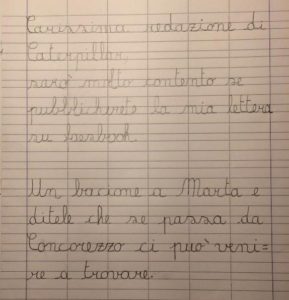 Carissima redazione di
Caterpillar,
sarò molto contento se
pubblicherete la mia lettera
su faesbook.
Un bacione a Marta e
ditele che se passa da
Concorezzo ci può veni=
re a trovare.